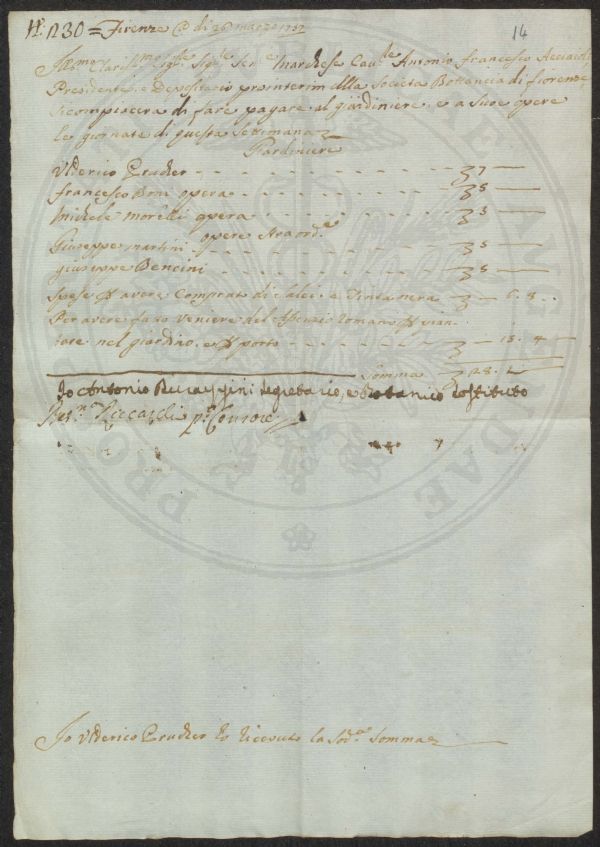 N.º 1230 = Firenze @ di 26 marzo 1737
14
Marchese Cav.re Antonio Francesco Acciaioli
Presidente, e Depositario prointerim della Societa Bottanica di fiorenze,
Si compiacera di fare pagare al giardiniere, e a Sue opere
le giornate di questa Settimana
Giardiniere
Ulderico Prucker 7
francesco Boni opera 5
Michele morelli opera 5
opere straord.e
Giuseppe martini 5
giuseppe Bencini 5
Spese p avere Comprato di Calci. e Tinta nera 6. 8
Per avere fatto Veniere del Assenzio romano p pian
tare nel giardino. e p porto 13. 4
Somma 28.
Io Antonio Segretario, e Botanico Sostituto
Riccardi p.o Console
Io Ulderico Prucker ho riceuto la Sod.a Somma